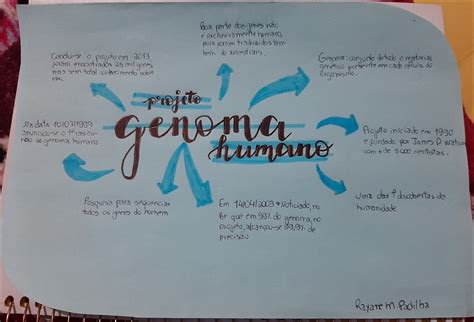 Boa parte dos genes não
é exclusivamente humano,
para serem traduzidos tam
bém de ancestrais.
Genoma: conjunto de todo o material
genético presente em cada célula do
organismo.
Projeto iniciado em 1990
e fundado por James D. Watson
com + de 5000 cientistas.
Uma das + descobertas da
humanidade
Em 14/04/2003 é noticiado, no
por que em 99% do genoma, no
projeto, alcançou-se 99,9% de
precisão
Pesquisa para sequenciar
todos os genes do homem
Na data 10/07/1999
anunciou-se o 1º rascu-
nho do genoma humano
Concluir-se o projeto em 2003
foram encontrados mil genes
mas sem total conhecimento sobre
eles.
projeto
genoma
humano
Rayane M. Padilha